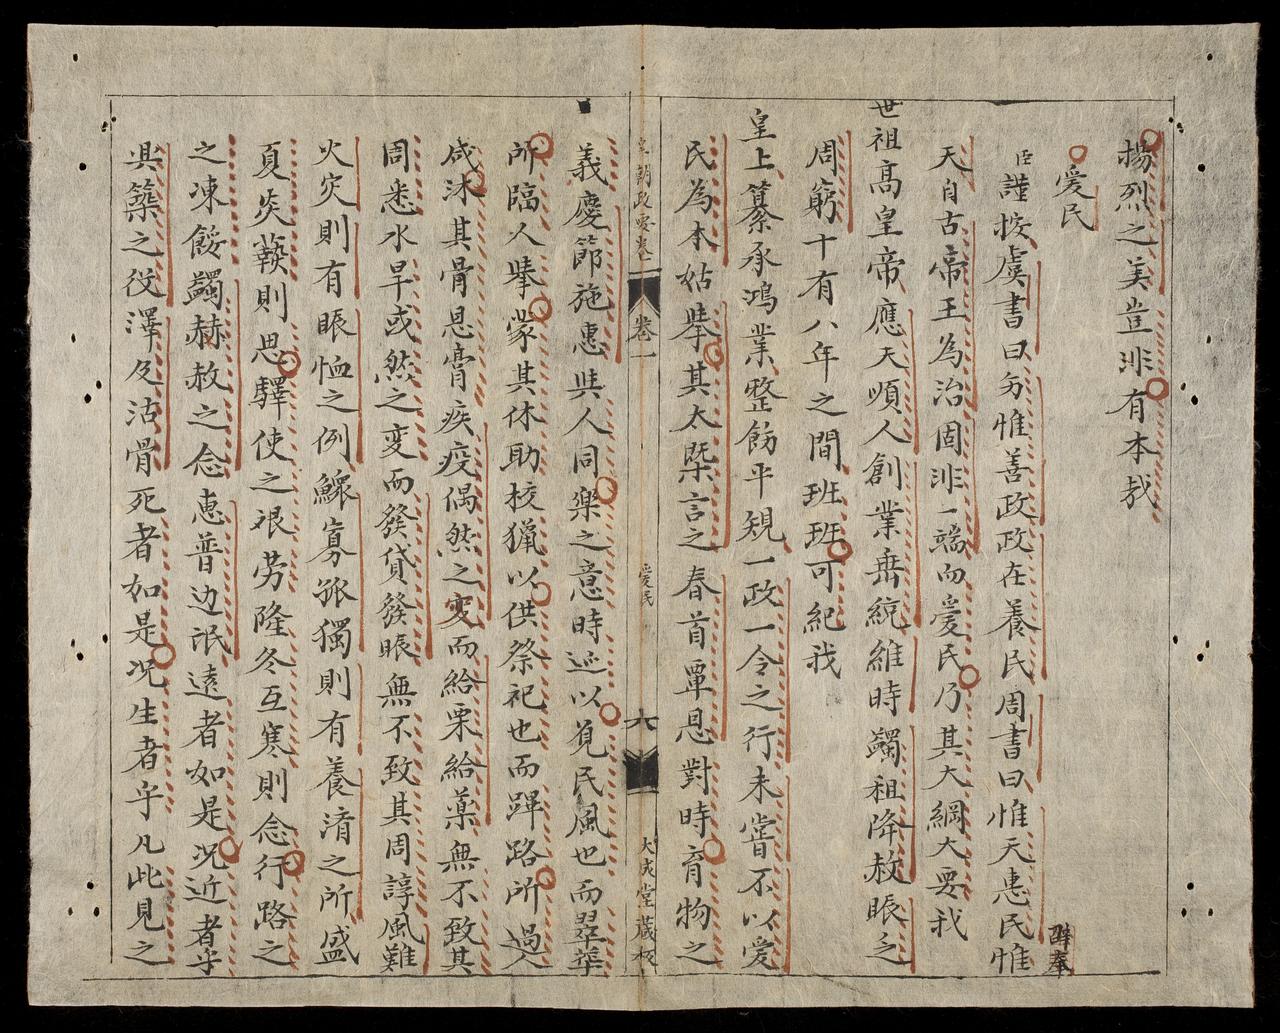 揚烈之美豈非有本哉
愛民
臣謹按虞書曰於惟善政政在養民周書曰惟天惠民惟
辟奉
天自古帝王為治固非一端而愛民乃其大綱大要我
世祖高皇帝應天順人創業垂統維時蠲租降赦賑乏
周窮十有八年之間班班可紀我
皇上纂承鴻業整飭平規一政一令之行未嘗不以愛
民為本姑舉其大槩言之春首覃恩對時育物之
皇朝政要卷一
卷一
愛民
六
大成堂藏板
義慶節施惠與人同樂之意時巡以覓民風也而翠華
所臨人舉蒙其休助校獵以供祭祀也而蹕路所過人
咸沐其骨恩膏疾疫偶然之変而給粟給藥無不致其
周悉水旱或然之変而發貸發賑無不致其周諄風難
火灾則有賑恤之例鰥寡孤獨則有養濟之所盛
夏炎蒸則思驛使之艰劳隆冬冱寒則念行路之
之凍餒蠲赫赦之念惠普边氓遠者如是况近者乎
具築之役澤及沽骨死者如是况生者乎凡此見之